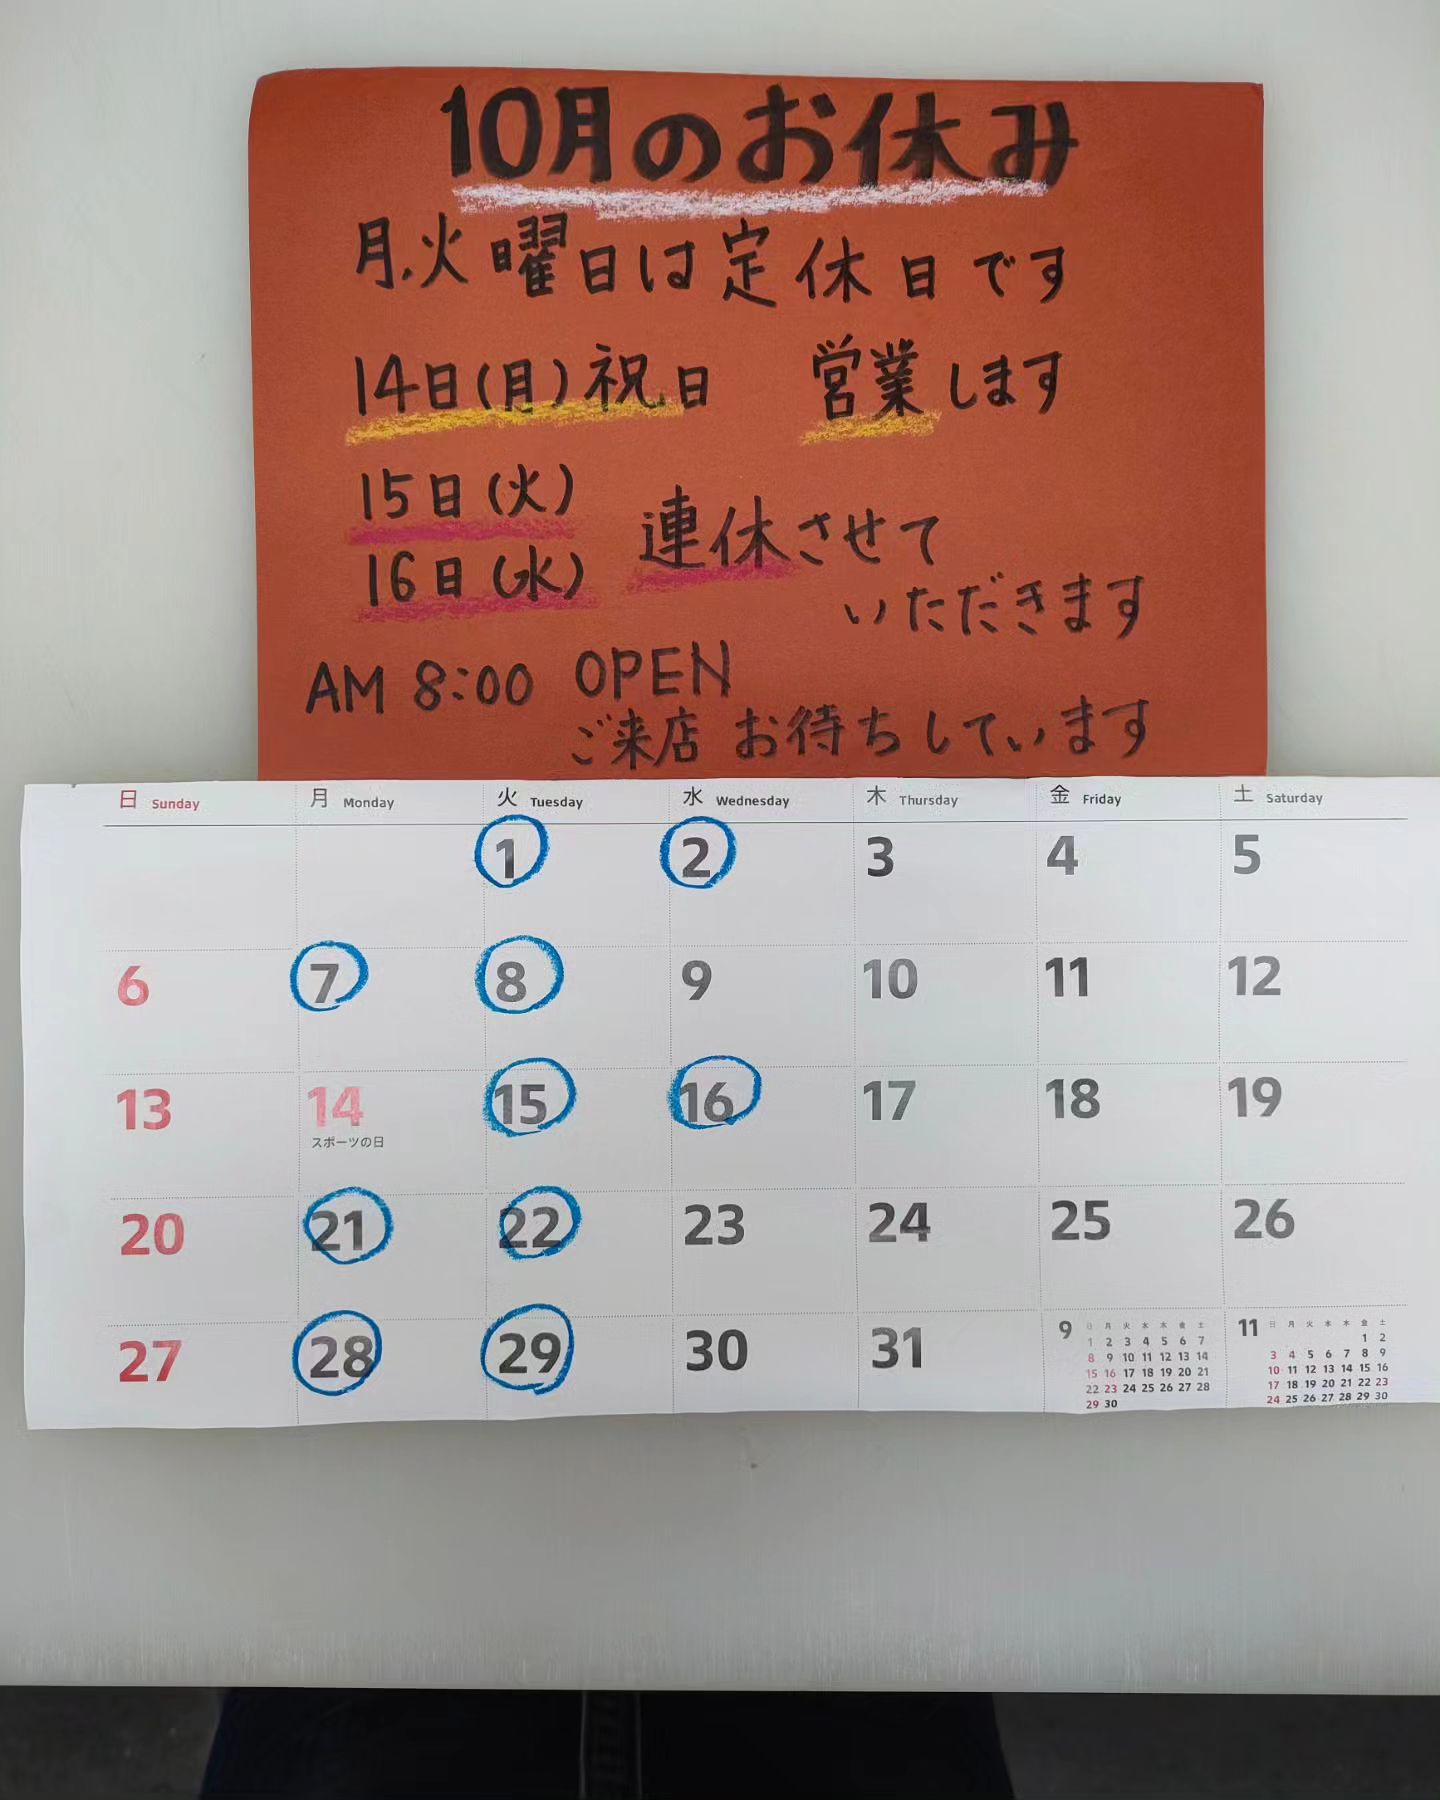 10月のお休み
月.火曜日は定休日です
14日(月)祝日 営業します
15日(火)
16日(水) 連休させて
いただきます
AM 8:00 OPEN
ご来店 お待ちしています
日 Sunday 月 Monday 火 Tuesday 水 Wednesday 木 Thursday 金 Friday 土 Saturday
1 2 3 4 5
6 7 8 9 10 11 12
13 14 15 16 17 18 19
スポーツの日
20 21 22 23 24 25 26
27 28 29 30 31
9 日 月 火 水 木 金 土
1 2 3 4 5 6 7
8 9 10 11 12 13 14
15 16 17 18 19 20 21
22 23 24 25 26 27 28
29 30
11 日 月 火 水 木 金 土
1 2
3 4 5 6 7 8 9
10 11 12 13 14 15 16
17 18 19 20 21 22 23
24 25 26 27 28 29 30